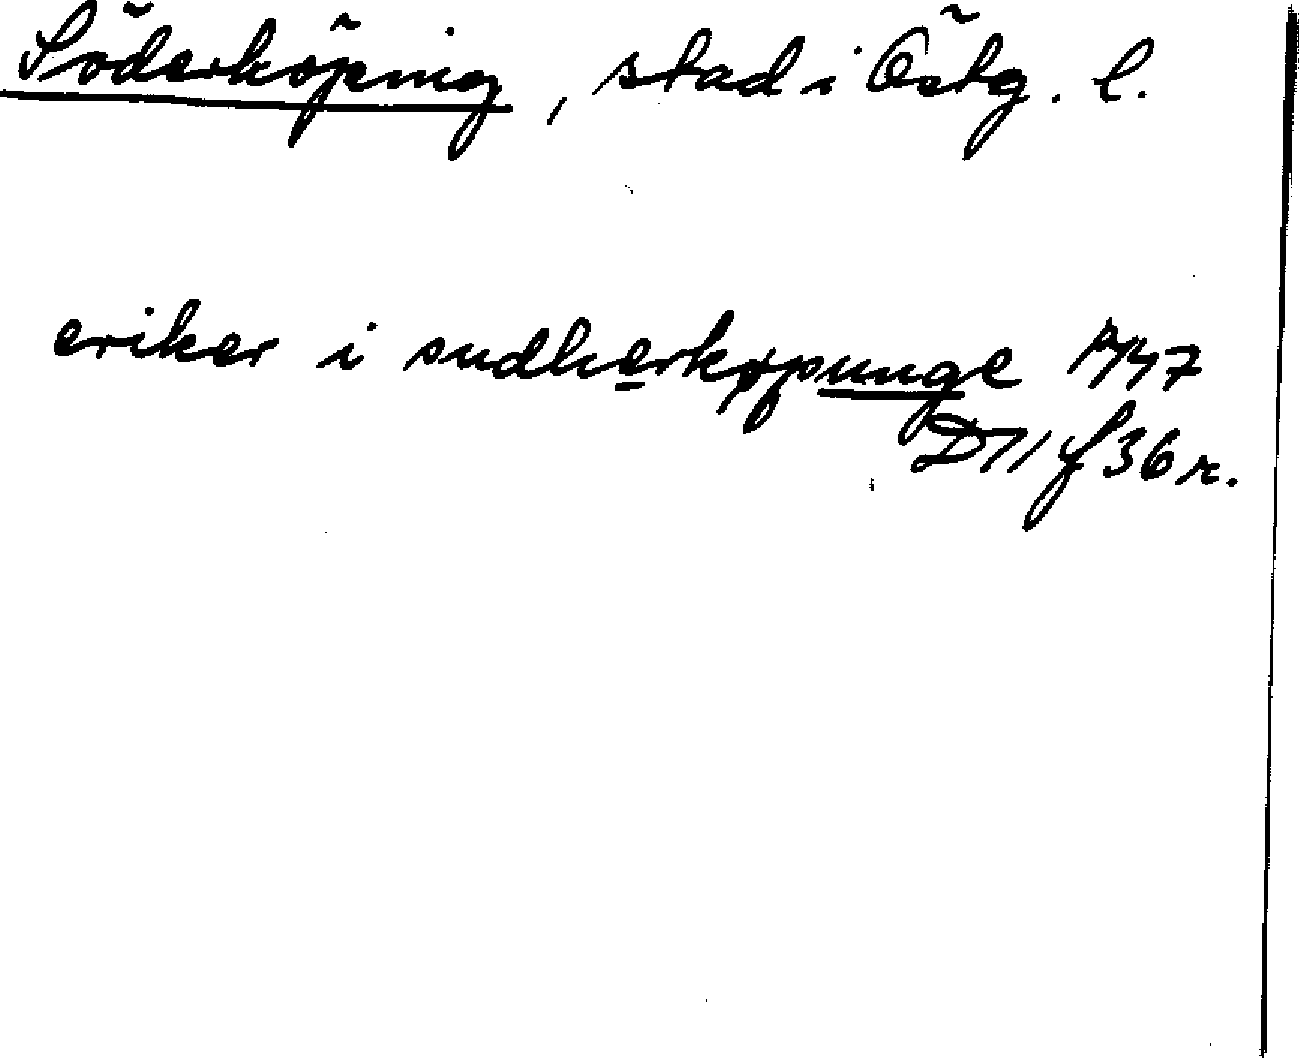 Söderköping, stad i Östg. l.
eriker i sudherkøpunge 1447
D 11 f 36 r.